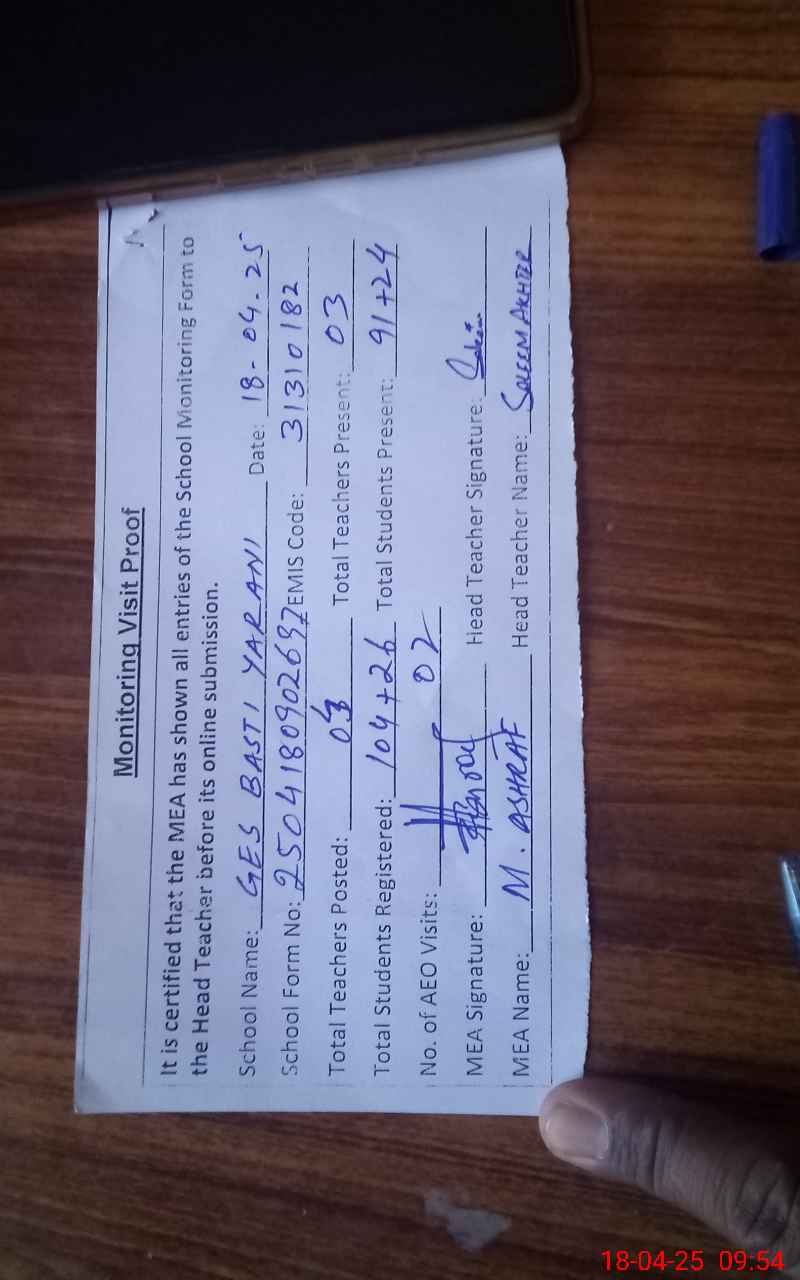 Monitoring Visit Proof
It is certified that the MEA has shown all entries of the School Monitoring Form to
the Head Teacher before its online submission.
School Name: GES BASTI YARANI Date: 18-04-25
School Form No: 250418090269 EMIS Code: 31310182
Total Teachers Posted: Total Teachers Present: 03
Total Students Registered: 104+26 Total Students Present: 91+24
No. of AEO Visits: 02
MEA Signature: Head Teacher Signature: Saleem
MEA Name: M. ASHRAF Head Teacher Name: SALEEM AKHTER
18-04-25 09:54